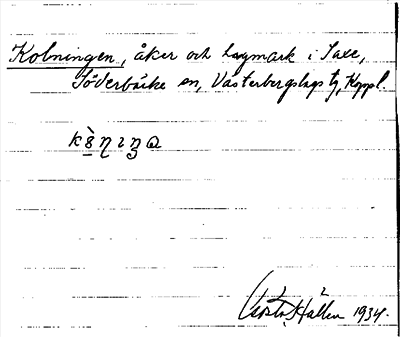 Kolningen, åker och hagmark i Saxe,
Söderbärke sn, Västerbergslags tg, Koppl.
Gösta Hallén 1934.